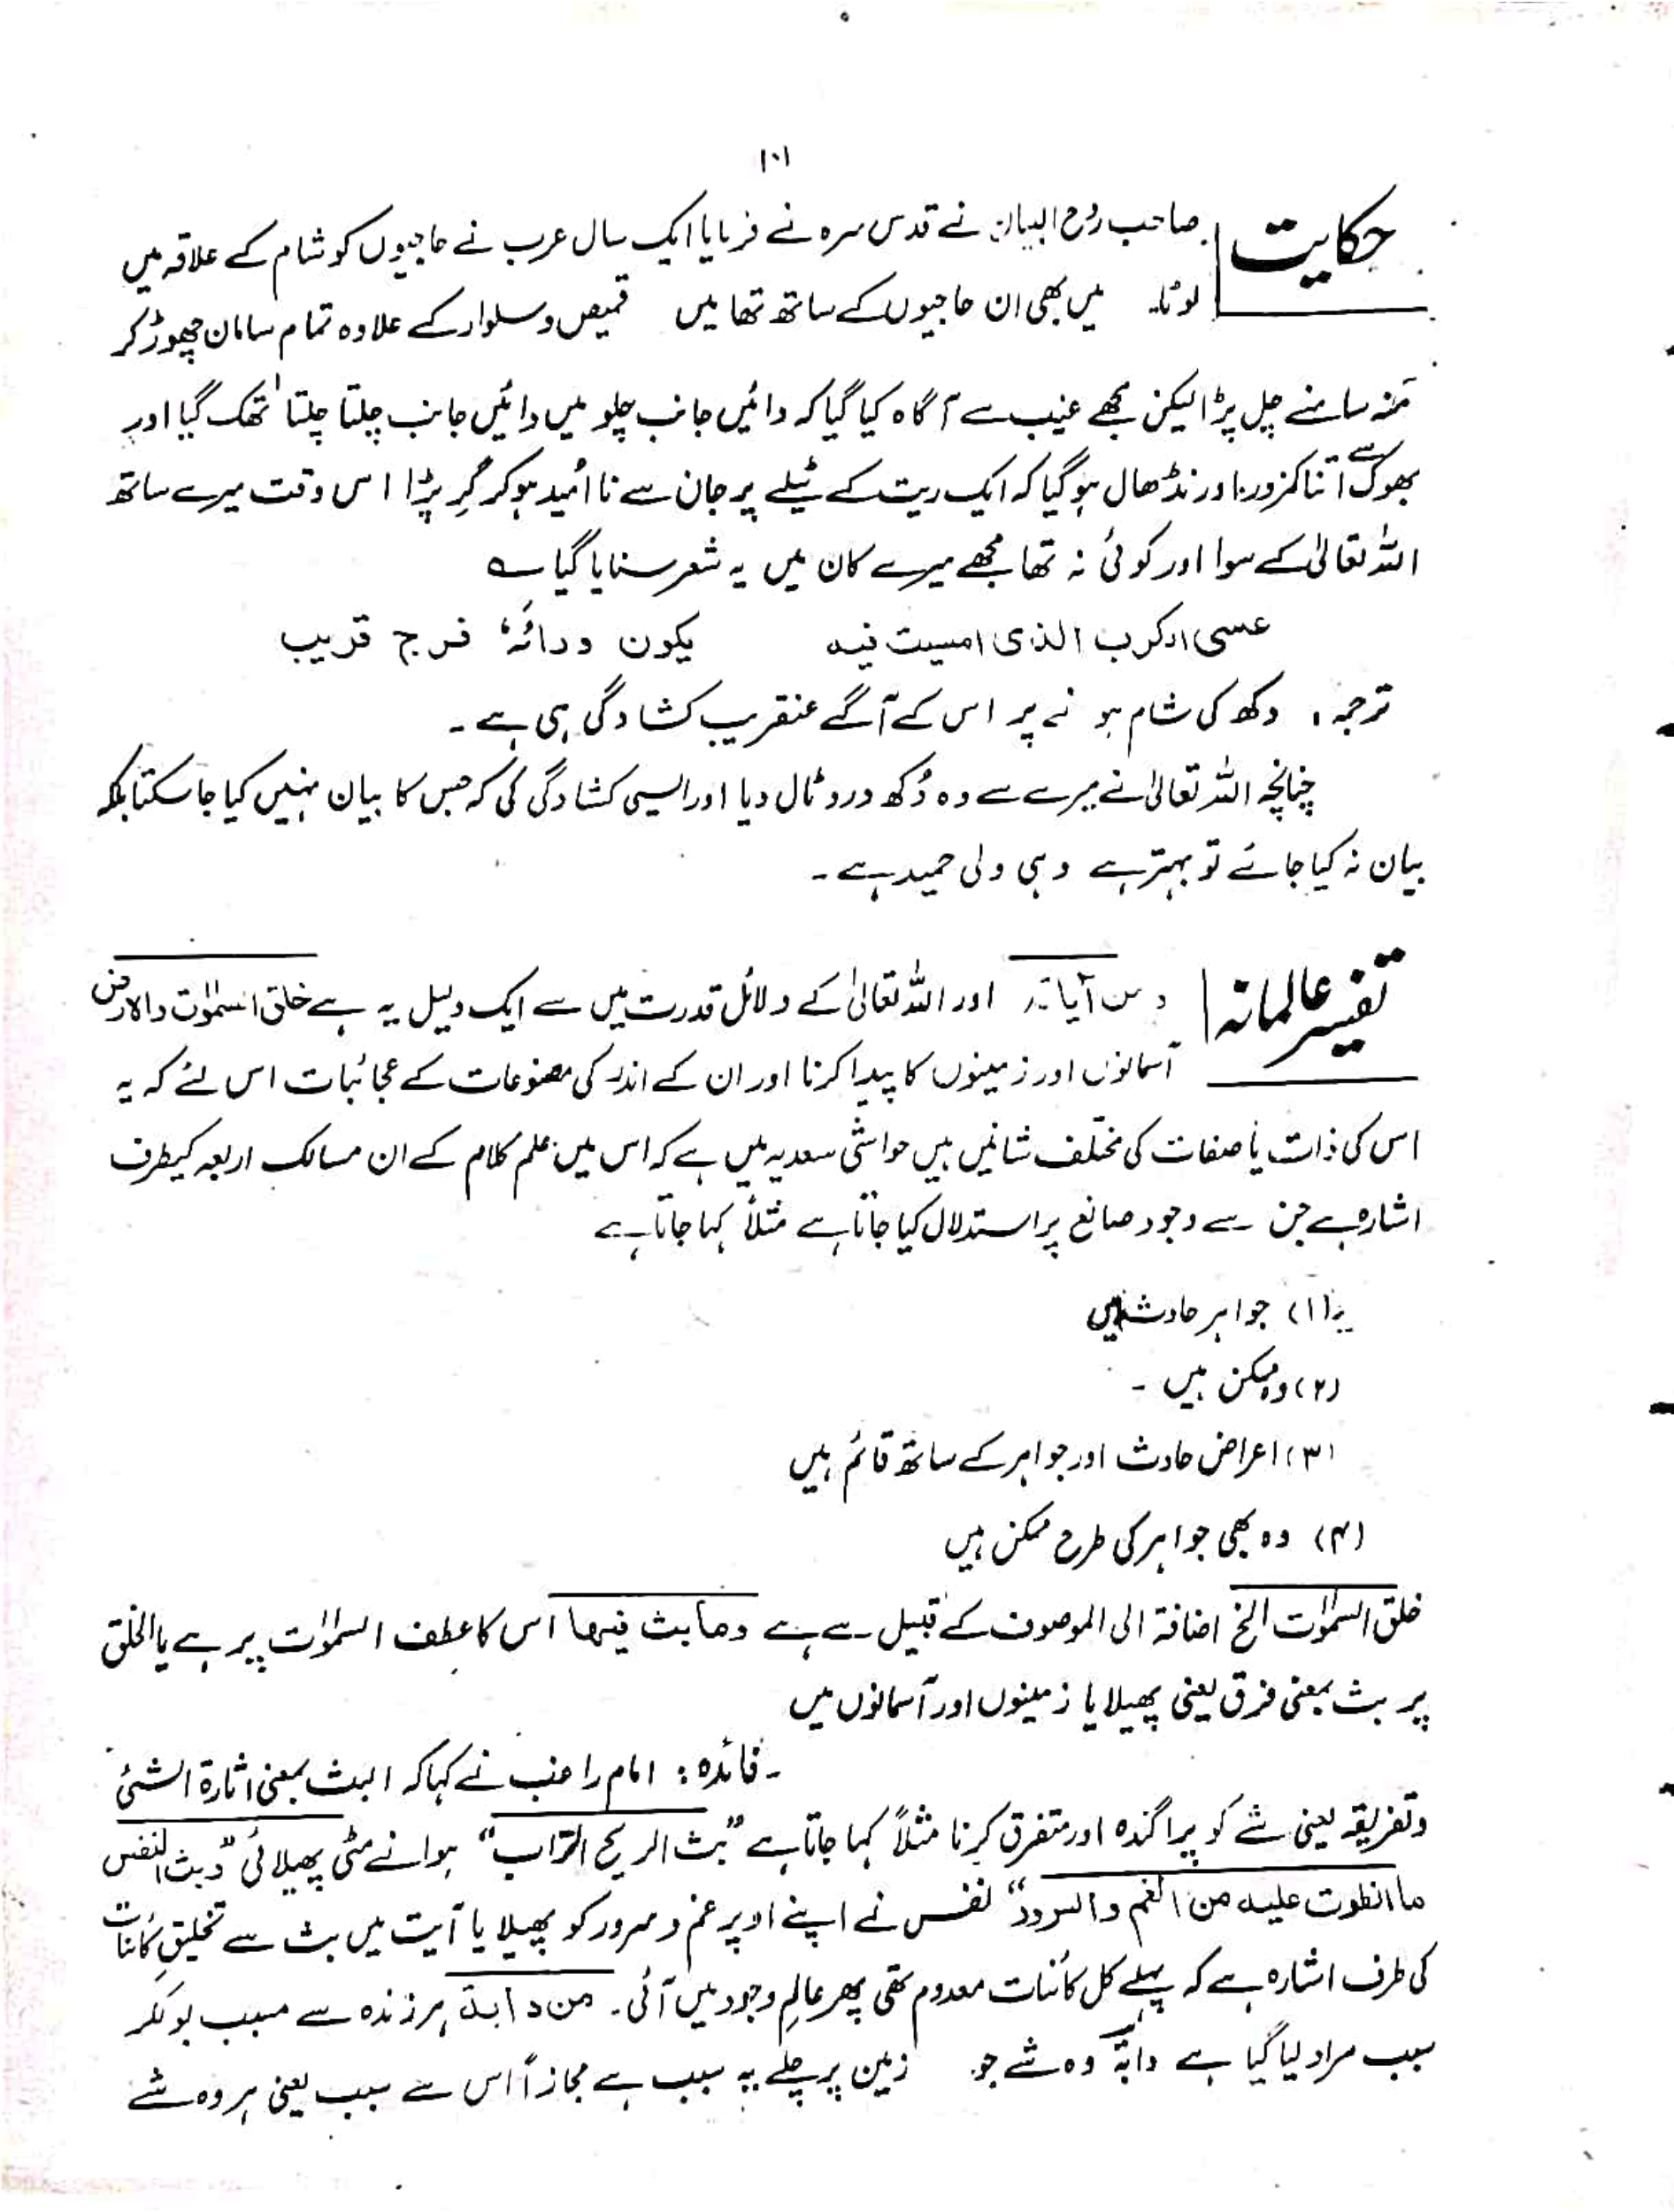 ۱۰۱
حکایت
صاحب روح البیان نے قدس سرہ نے فرمایا ایک سال عرب نے حاجیوں کو شام کے علاقہ میں
لوٹا۔ میں بھی ان حاجیوں کے ساتھ تھا میں قمیص و سلوار کے علاوہ تمام سامان چھوڑ کر
منہ سامنے چل پڑا لیکن مجھے غیب سے آگاہ کیا گیا کہ دائیں جانب چلو میں دائیں جانب چلتا چلتا تھک گیا اور
بھوک سے اتنا کمزور اور نڈھال ہو گیا کہ ایک ریت کے ٹیلے پر جان سے نا اُمید ہو کر گِر پڑا اس وقت میرے ساتھ
اللہ تعالیٰ کے سوا اور کوئی نہ تھا مجھے میرے کان میں یہ شعر سنایا گیا ؎
عسی الکرب الذی امسیت فیہ یکون ورائہٗ فرج قریب
ترجمہ، دکھ کی شام ہو نے پر اس کے آگے عنقریب کشادگی ہی ہے۔
چنانچہ اللہ تعالیٰ نے میرے سے وہ دُکھ درد ٹال دیا اور ایسی کشادگی کی کہ جس کا بیان نہیں کیا جا سکتا بلکہ
بیان نہ کیا جائے تو بہتر ہے وہی ولی حمید ہے۔
تفسیر عالمانہ
ومن آیاتہ اور اللہ تعالیٰ کے دلائل قدرت میں سے ایک دلیل یہ ہے خلق السمٰوٰت والارض
آسمانوں اور زمینوں کا پیدا کرنا اور ان کے اندر کی مصنوعات کے عجائبات اس لئے کہ یہ
اس کی ذات یا صفات کی مختلف شانیں ہیں حواشی سعدیہ میں ہے کہ اس میں علم کلام کے ان مسالک اربعہ کیطرف
اشارہ ہے جن سے وجود صانع پر استدلال کیا جاتا ہے مثلاً کہا جاتا ہے
(۱) جواہر حادث ہیں
(۲) وہ ممکن ہیں ۔
(۳) اعراض حادث اور جواہر کے ساتھ قائم ہیں
(۴) وہ بھی جواہر کی طرح ممکن ہیں
خلق السمٰوٰت الخ اضافۃ الی الموصوف کے قبیل سے ہے وما بث فیہا اس کا عطف السمٰوٰت پر ہے یا الخلق
پر بث بمعنی فرق یعنی پھیلایا زمینوں اور آسمانوں میں
۔ فائدہ : امام راغب نے کہا کہ البث بمعنی اثارۃ الشئی
وتفریقہ یعنی شے کو پراگندہ اور متفرق کرنا مثلاً کہا جاتا ہے ”بث الریح التراب“ ہوا نے مٹی پھیلائی ”وبث النفس
ما انطوت علیہ من الغم والسرور“ نفس نے اپنے اوپر غم و سرور کو پھیلا یا آیت میں بث سے تخلیقِ کائنات
کی طرف اشارہ ہے کہ پہلے کل کائنات معدوم تھی پھر عالمِ وجود میں آئی۔ من دابۃ ہر زندہ سے مسبب بولکر
سبب مراد لیا گیا ہے دابۃ وہ شے جو زمین پر چلے یہ سبب ہے مجازاً اس سے سبب یعنی ہر وہ شے